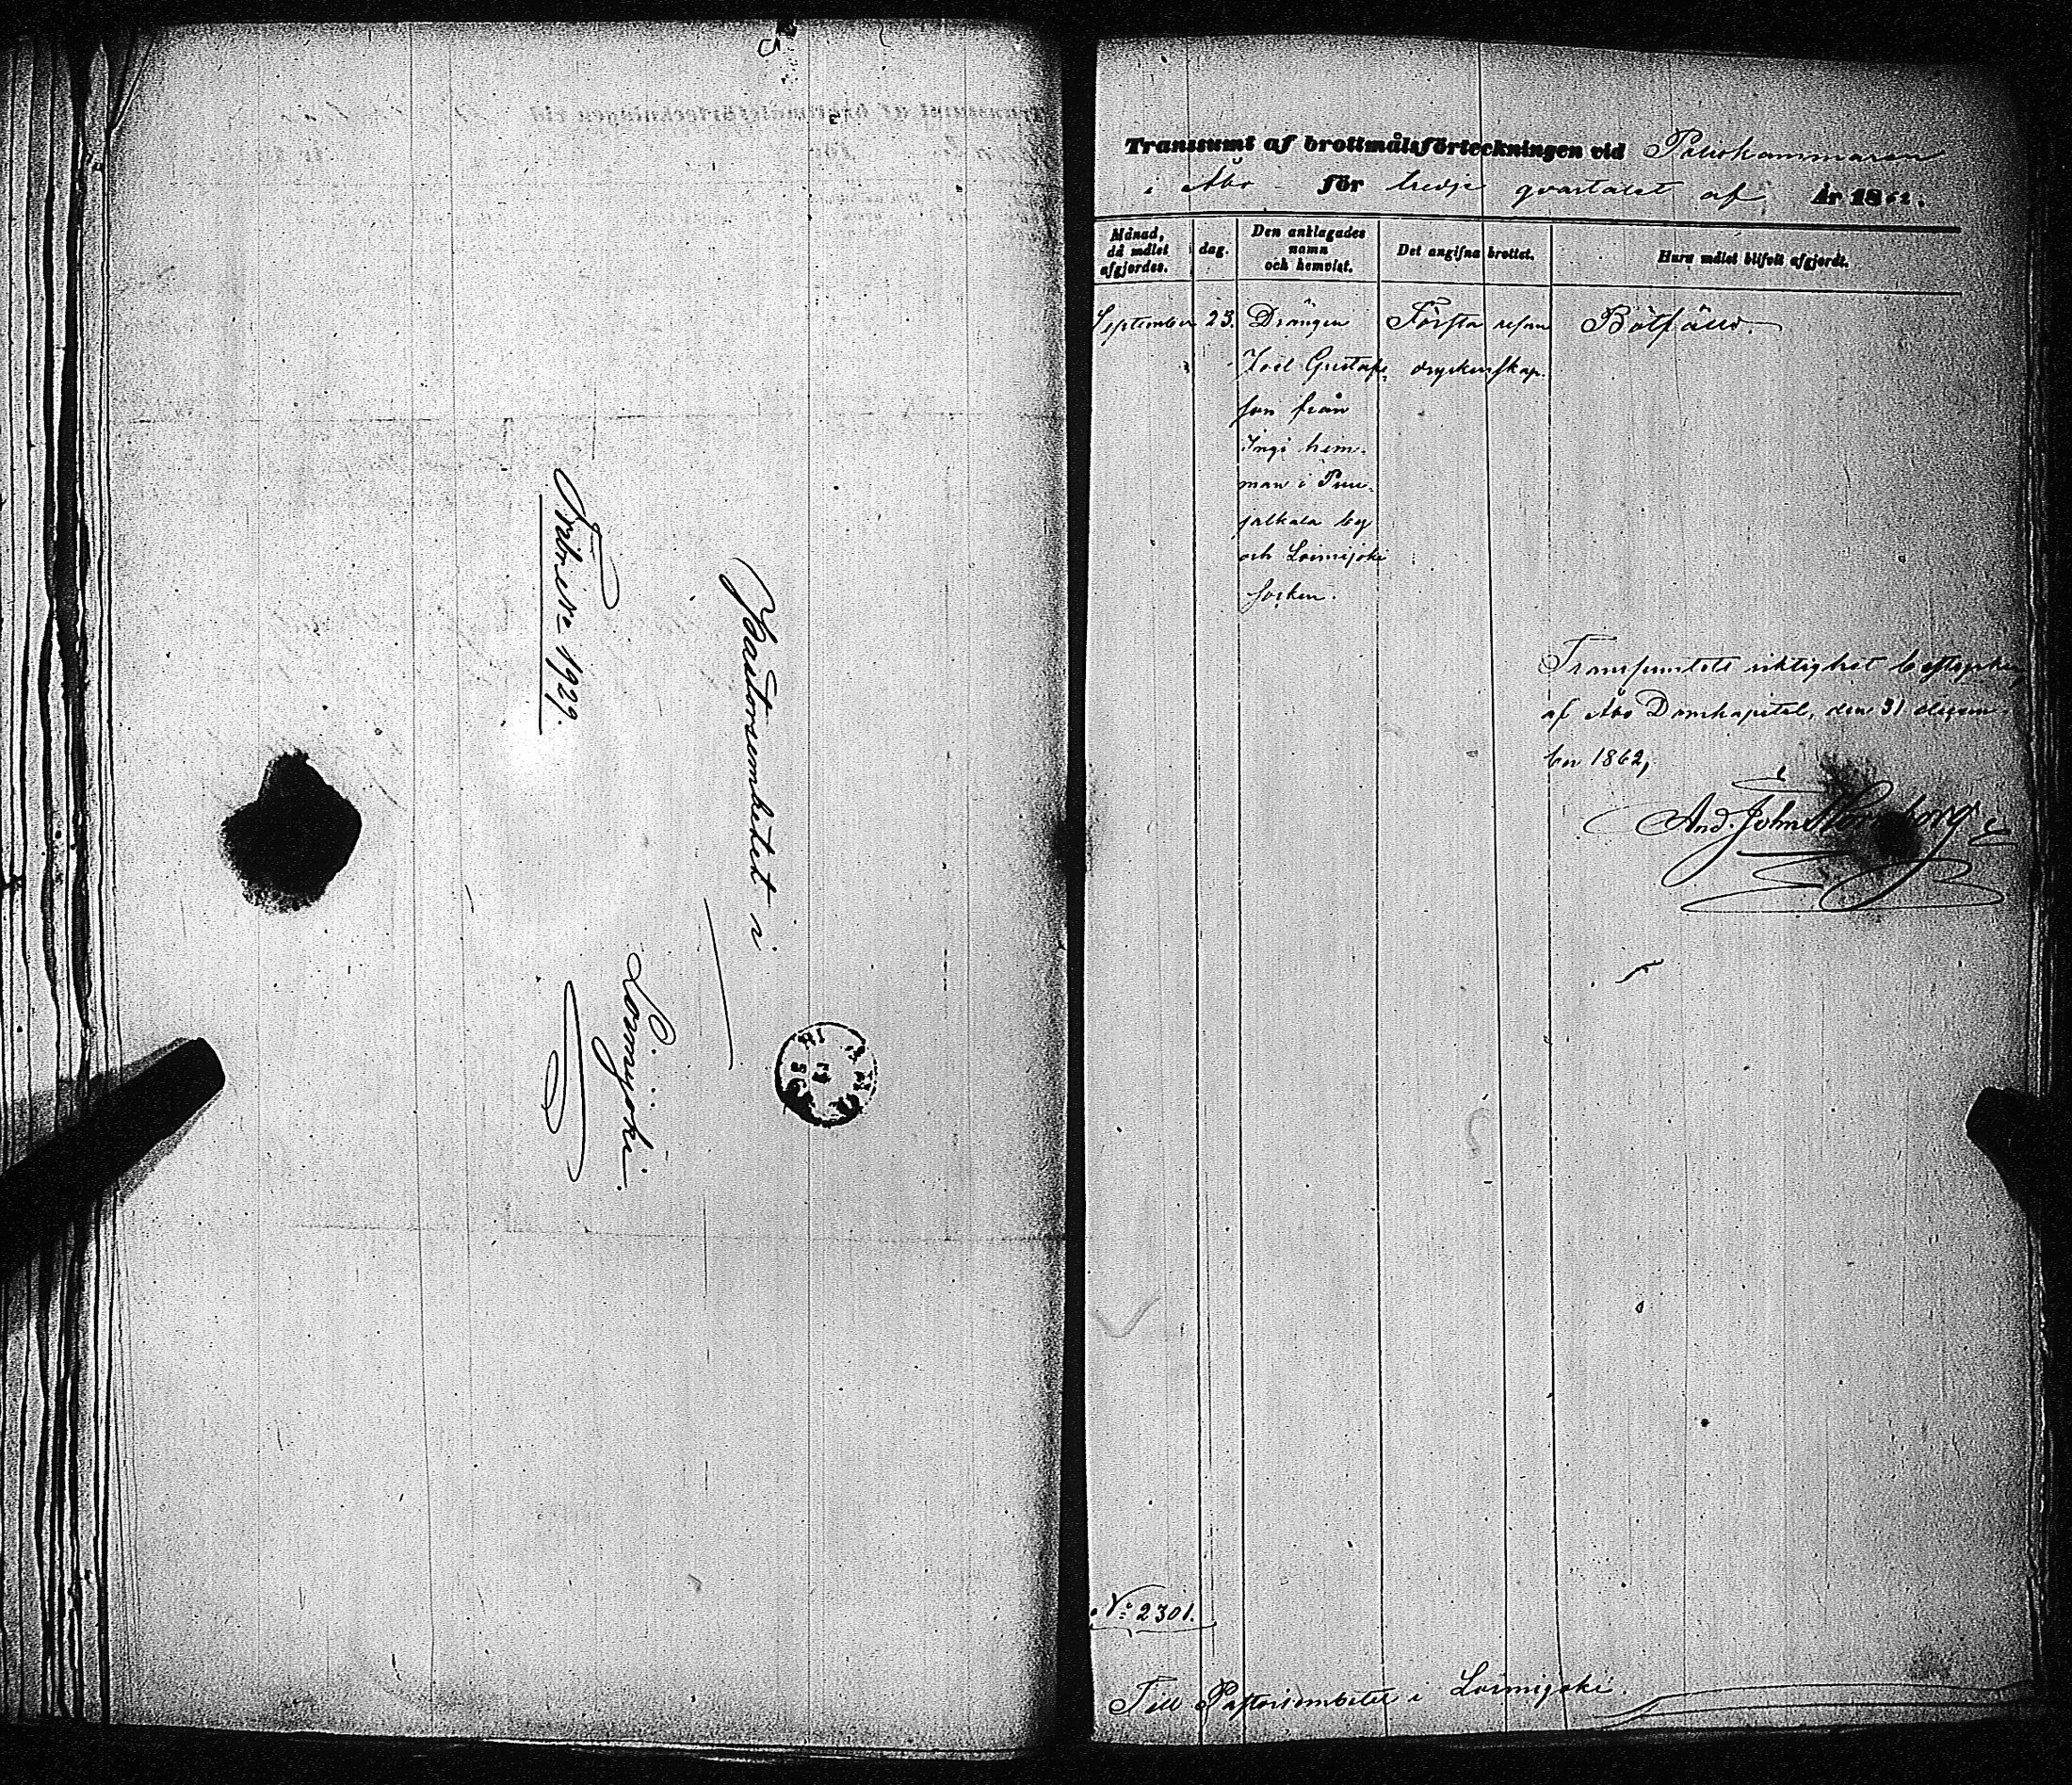 Pastorsembetet i
Loimijoki.
Fribref 1929.
Transsumt af brottmålsförteckningen vid Poliskammaren
i Åbo för tredje qvartalet af År 1862.
Månad, då målet afgjordes.
dag.
Den anklagades namn och hemvist.
Det angifna brottet.
Huru målet blifvit afgjordt.
September 23. Drängen Första resan Bötfäld.
Joel Gustafs- dryckenskap.
son från
Ingi hem-
man i
jalkala by
och Loimijoki
socken.
Transsumtets riktighet bestyrkes,
af Åbo Domkapitel, den 31 decem-
ber 1862,
And. Joh. Hornborg
No 2301.
Till Pastorsembetet i Loimijoki.